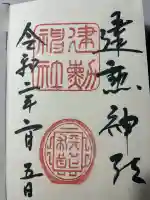 建勲神社
建勲
神社
令和二年 月五日